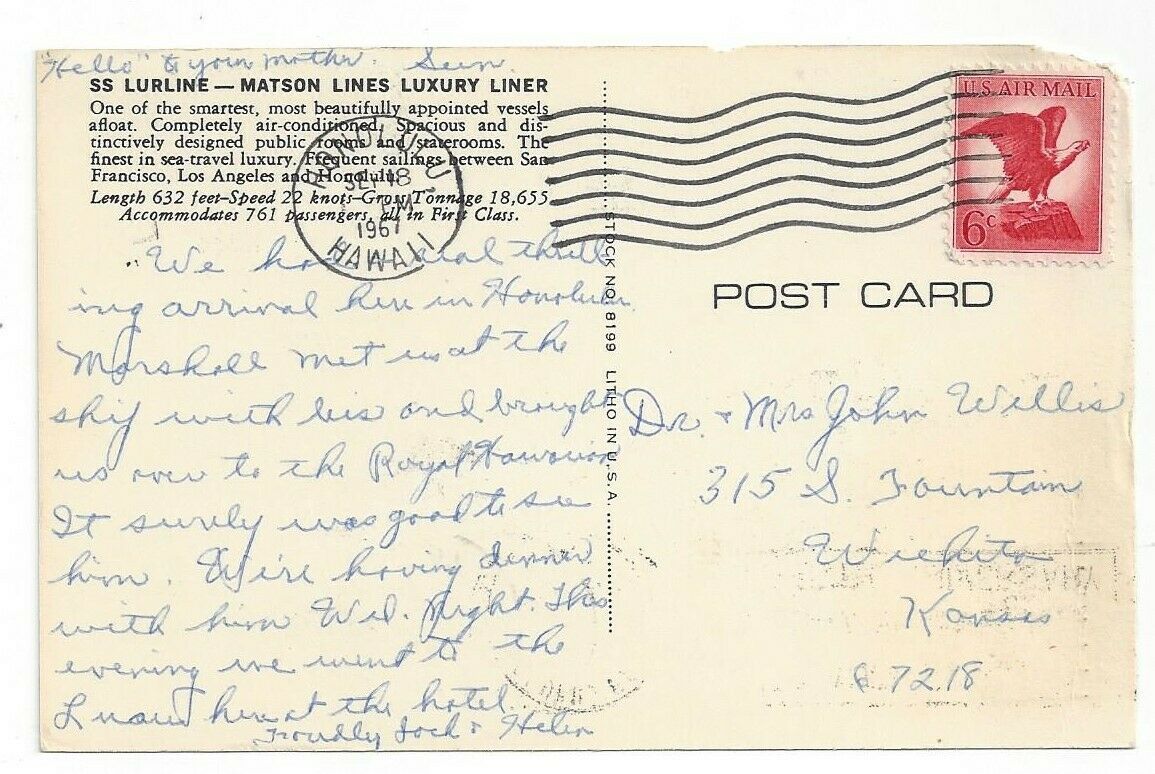 "Hello" to your mother.
SS LURLINE — MATSON LINES LUXURY LINER
One of the smartest, most beautifully appointed vessels
afloat. Completely air-conditioned. Spacious and dis-
tinctively designed public rooms and staterooms. The
finest in sea-travel luxury. Frequent sailings between San
Francisco, Los Angeles and Honolulu.
Length 632 feet–Speed 22 knots–Gross Tonnage 18,655
Accommodates 761 passengers, all in First Class.
We had real thrill
ing arrival here in Honolulu
Marshall met us at the
ship with leis and brought
us over to the Royal Hawaiian
It surely was good to see
him. We're having dinner
with him Wed. Night. This
evening we went to the
Luau here at the hotel.
Jack & Helen
HONOLULU,
SEP 18
PM
1967
HAWAII
STOCK NO. 8199 LITHO IN U.S.A.
U.S. AIR MAIL
6c
POST CARD
Dr. & Mrs John Willis
315 S. Fountain
Wichita
Kansas
67218